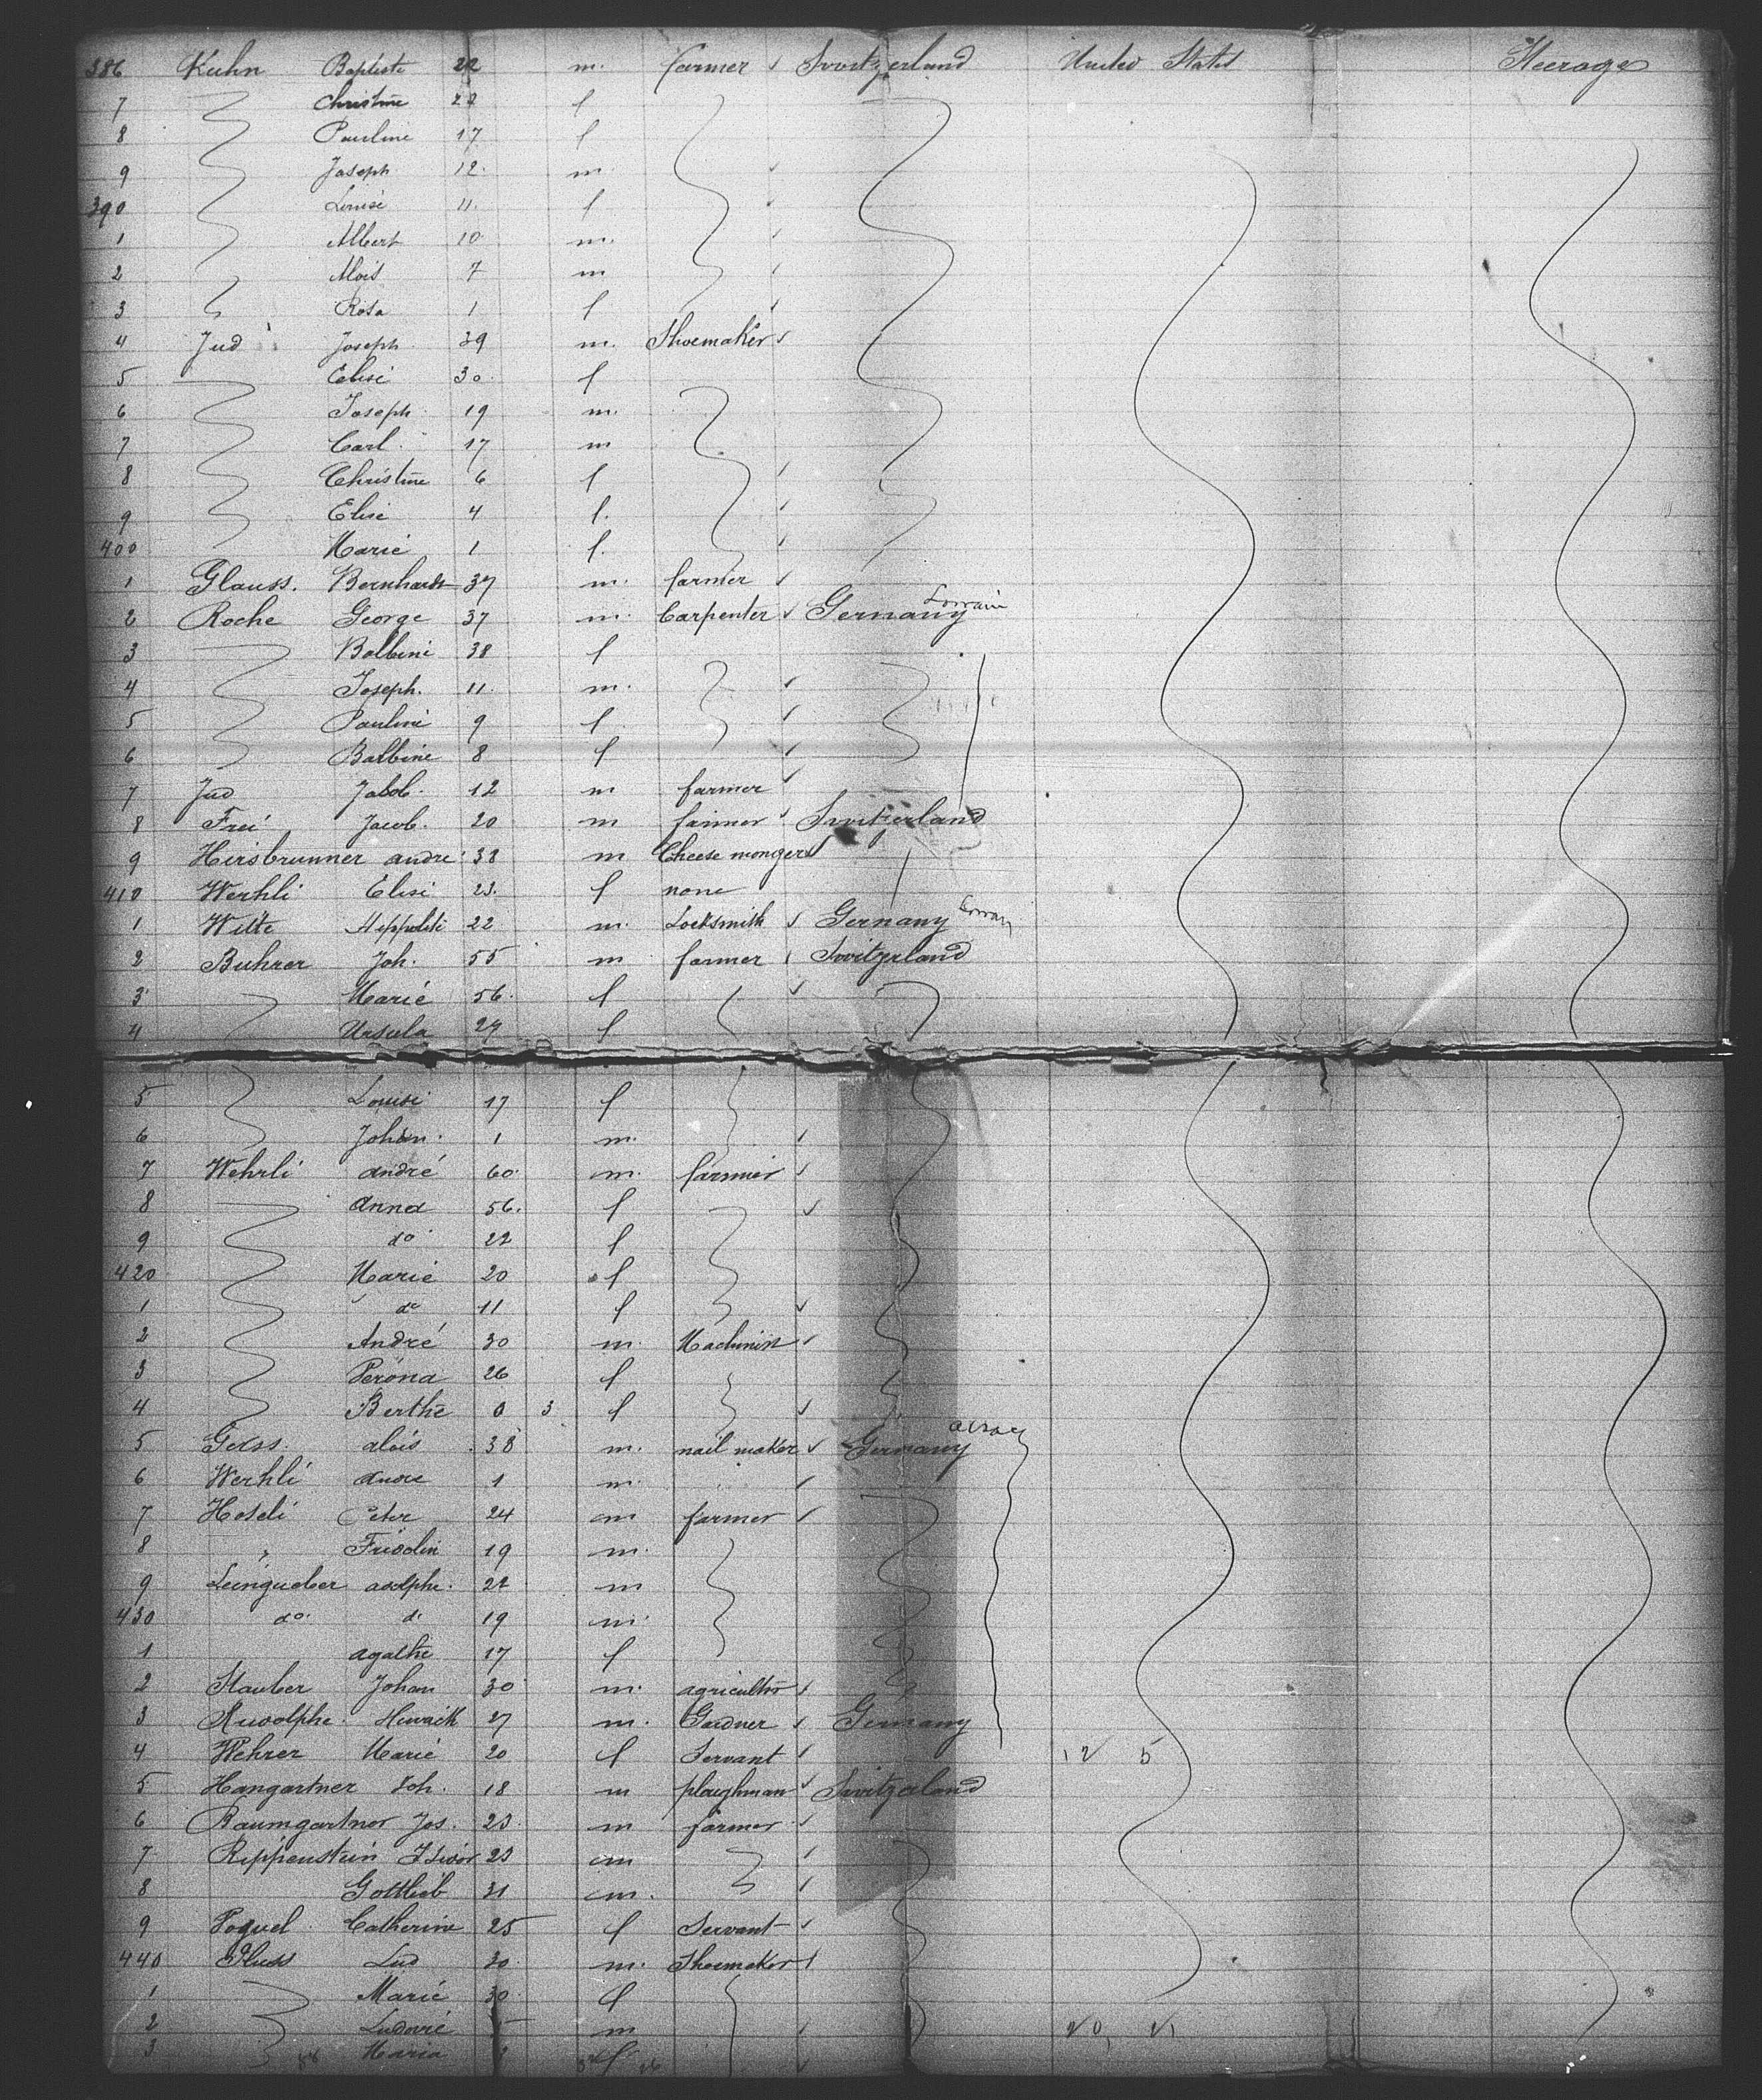 386 Kuhn Baptiste 22 m. farmer Switzerland United States Steerage
7 Christine 22 f
8 Pauline 17 f
9 Joseph 12. m
390 Louise 11. f
1 Albert 10 m.
2 Alois 7 m
3 Rosa 1 f
4 Jud Joseph 39 m. Shoemaker
5 Elise 30. f
6 Joseph 19 m.
7 Carl 17 m
8 Christine 6 f
9 Elise 4 f.
400 Marie 1 f.
1 Glauss. Bernhardt 37 m. farmer
2 Roche George 37 m. Carpenter Germany Lorrain
3 Balbine 38 f
4 Joseph. 11. m.
5 Pauline 9 f
6 Balbine 8 f
7 Jud Jakob. 12 m farmer
8 Frei Jacob. 20 m farmer Switzerland
9 Hirsbrunner andre 38 m Cheese monger
410 Werhli Elise 23. f none
1 Witte Hippolite 22 m. Locksmith Germany
2 Buhrer Joh. 55 m farmer Switzerland
3 Marie 56. f
4 Ursula 24 f
5 Louise 17 f
6 Johan. 1 m.
7 Wehrli andré 60 m. farmer
8 anna 56. f
9 do 22 f
420 Marie 20 f
1 do 11 f
2 André 30 m. Machinist
3 Verona 26 f
4 Berthe 0 3 f
5 Gerss. alois 38 m. nail maker Germany
6 Werhli andre 1 m.
7 Hoseli Peter 24 m farmer
8 " Fridolin 19 m.
9 Leingueber adolphe. 22 m
430 do. do 19 m.
1 agathe 17 f
2 Stauber Johan 30 m. agricultor
3 Rudolphe 27 m. Gardner Germany
4 Wehrer Marie 20 f Servant 12 5
5 Hangartner Joh. 18 m ploughman Switzerland
6 Baumgartner Jos. 23. m farmer
7 Rippenstein Isidor 23 m
8 Gottlieb 31 m.
9 Poquel Catherine 25 f Servant
440 Pluss Lud 30 m. Shoemaker
1 Marie 30 f
2 Ludovic m
3 Maria f